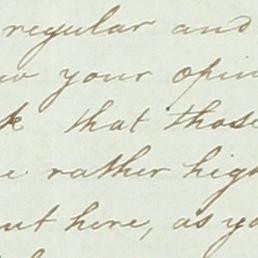 regular and
your opin
k that those
e rather high
ut here, as yo